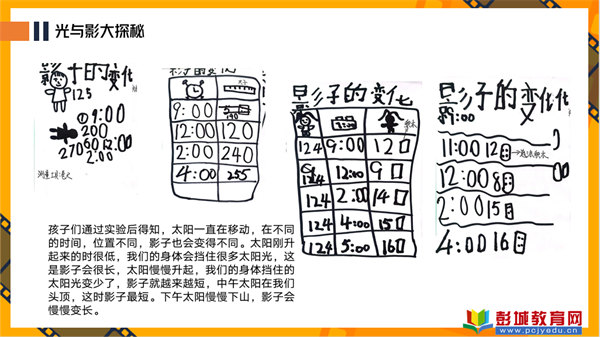 光与影大探秘
影子的变化
125
① 9:00
200
60 12:00
270 2:00
影子的变化
9:00
12:00 120
2:00 240
4:00 255
影子的变化
124 9:00 12
124 12:00 9
124 2:00 14
124 4:00 15
124 5:00 16
影子的变化
9:00
11:00 12
12:00 8
2:00 15
4:00 16
孩子们通过实验后得知，太阳一直在移动，在不同
的时间，位置不同，影子也会变得不同。太阳刚升
起来的时很低，我们的身体会挡住很多太阳光，这
是影子会很长，太阳慢慢升起，我们的身体挡住的
太阳光变少了，影子就越来越短，中午太阳在我们
头顶，这时影子最短。下午太阳慢慢下山，影子会
慢慢变长。
彭城教育网
www.pcjyedu.cn